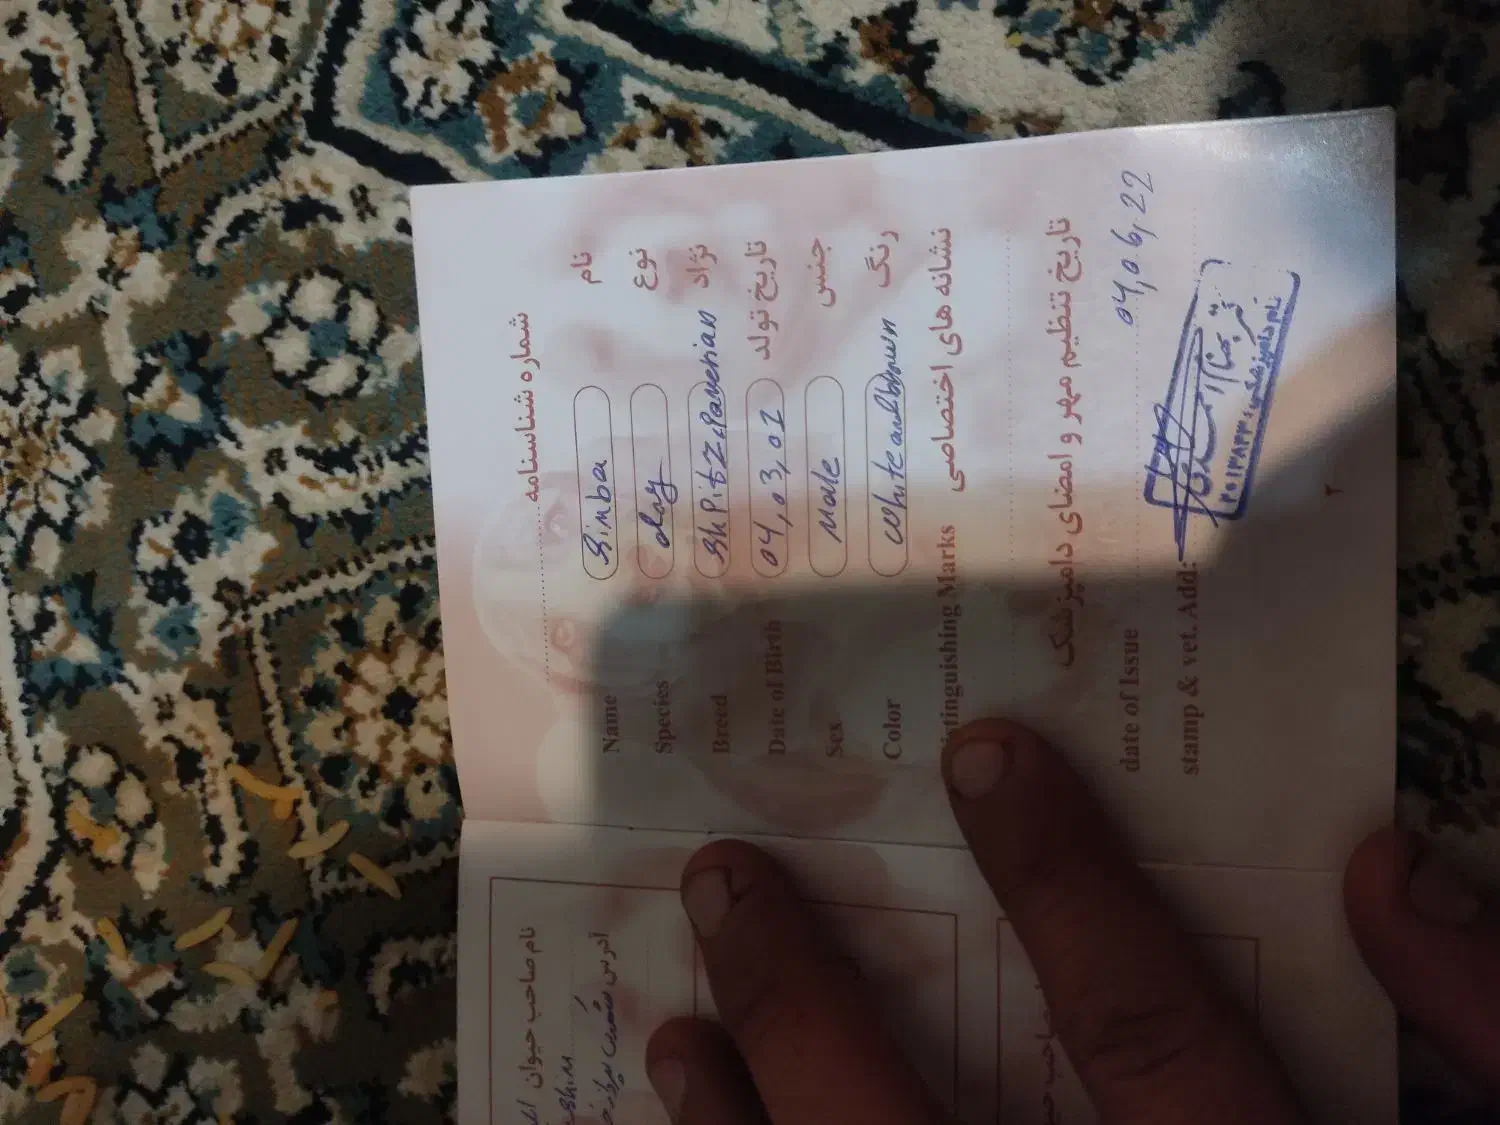 شماره شناسنامه
Name Simba نام
Species dog نوع
Breed ShPitZ,Pamerian نژاد
Date of Birth 04,03,01 تاریخ تولد
Sex Male جنس
Color white and brown رنگ
tinguishing Marks نشانه های اختصاصی
تاریخ تنظیم مهر و امضای دامپزشک
date of Issue 04,06,22
stamp & vet. Add:
نام دامپزشکی
۲
نام صاحب حیوان
آدرس